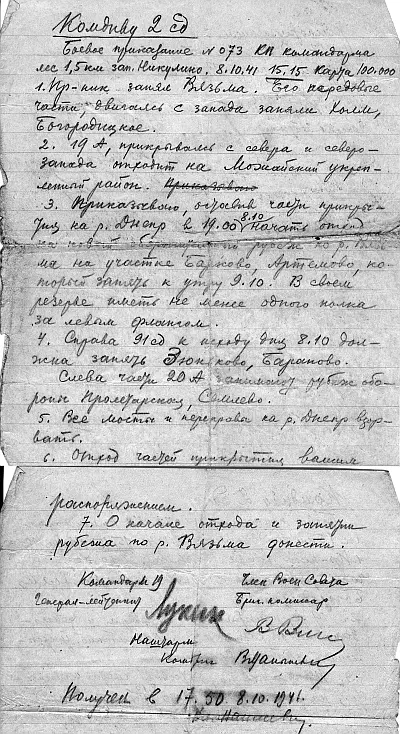 Комдиву 2 сд
Боевое приказание N 073 КП командарма
лес 1,5 км зап. Никулино. 8.10.41 15.15 Карта 100.000
1. Пр-ник занял Вязьма. Его передовые
части, двигаясь с запада заняли Холм,
Богородицкое.
2. 19 А, прикрываясь с севера и северо-
запада отходит на Можайский укреп-
ленный район. Приказываю
3. Приказываю, оставив части прикры-
тия на р. Днепр в 19.00 8.10 начать отход
на новый оборонит. рубеж по р. Вязь-
ма на участке Барково, Артемово, ко-
торый занять к утру 9.10. В своем
резерве иметь не менее одного полка
за левым флангом.
4. Справа 91 сд к исходу дня 8.10 дол-
жна занять Зюньково, Бараново.
Слева части 20 А занимают рубеж обо-
роны Пролетарская, Семлево.
5. Все мосты и переправы на р. Днепр взор-
вать.
6. Отход частей прикрытия вашим
распоряжением.
7. О начале отхода и занятии
рубежа по р. Вязьма донести.
Командарм 19 Член Воен Совета
Генерал-лейтенант Лукин Бриг. комиссар
Наштарм
Комбриг
Получен в 17.50 8.10.1941.